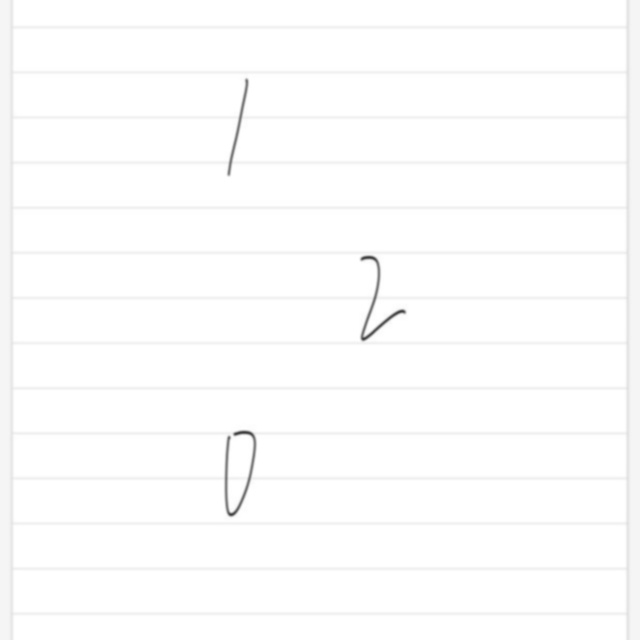 1
2
0